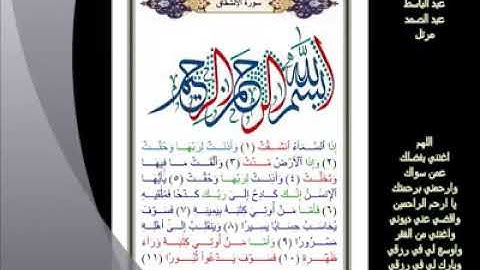 سورة الإنشقاق
بسم الله الرحمن الرحيم
إِذَا ٱلسَّمَآءُ ٱنشَقَّتْ (١) وَأَذِنَتْ لِرَبِّهَا وَحُقَّتْ
(٢) وَإِذَا ٱلْأَرْضُ مُدَّتْ (٣) وَأَلْقَتْ مَا فِيهَا
وَتَخَلَّتْ (٤) وَأَذِنَتْ لِرَبِّهَا وَحُقَّتْ (٥) يَٰٓأَيُّهَا
ٱلْإِنسَٰنُ إِنَّكَ كَادِحٌ إِلَىٰ رَبِّكَ كَدْحًا فَمُلَٰقِيهِ
(٦) فَأَمَّا مَنْ أُوتِىَ كِتَٰبَهُۥ بِيَمِينِهِۦ (٧) فَسَوْفَ
يُحَاسَبُ حِسَابًا يَسِيرًا (٨) وَيَنقَلِبُ إِلَىٰٓ أَهْلِهِۦ
مَسْرُورًا (٩) وَأَمَّا مَنْ أُوتِىَ كِتَٰبَهُۥ وَرَآءَ
ظَهْرِهِۦ (١٠) فَسَوْفَ يَدْعُوا۟ ثُبُورًا (١١)
عبد الباسط
عبد الصمد
مرتل
اللهم
اغنني بفضلك
عمن سواك
وارحمني برحمتك
يا ارحم الراحمين
واقضي عني ديوني
واغنني من الفقر
واوسع لي في رزقي
وبارك لي في رزقي